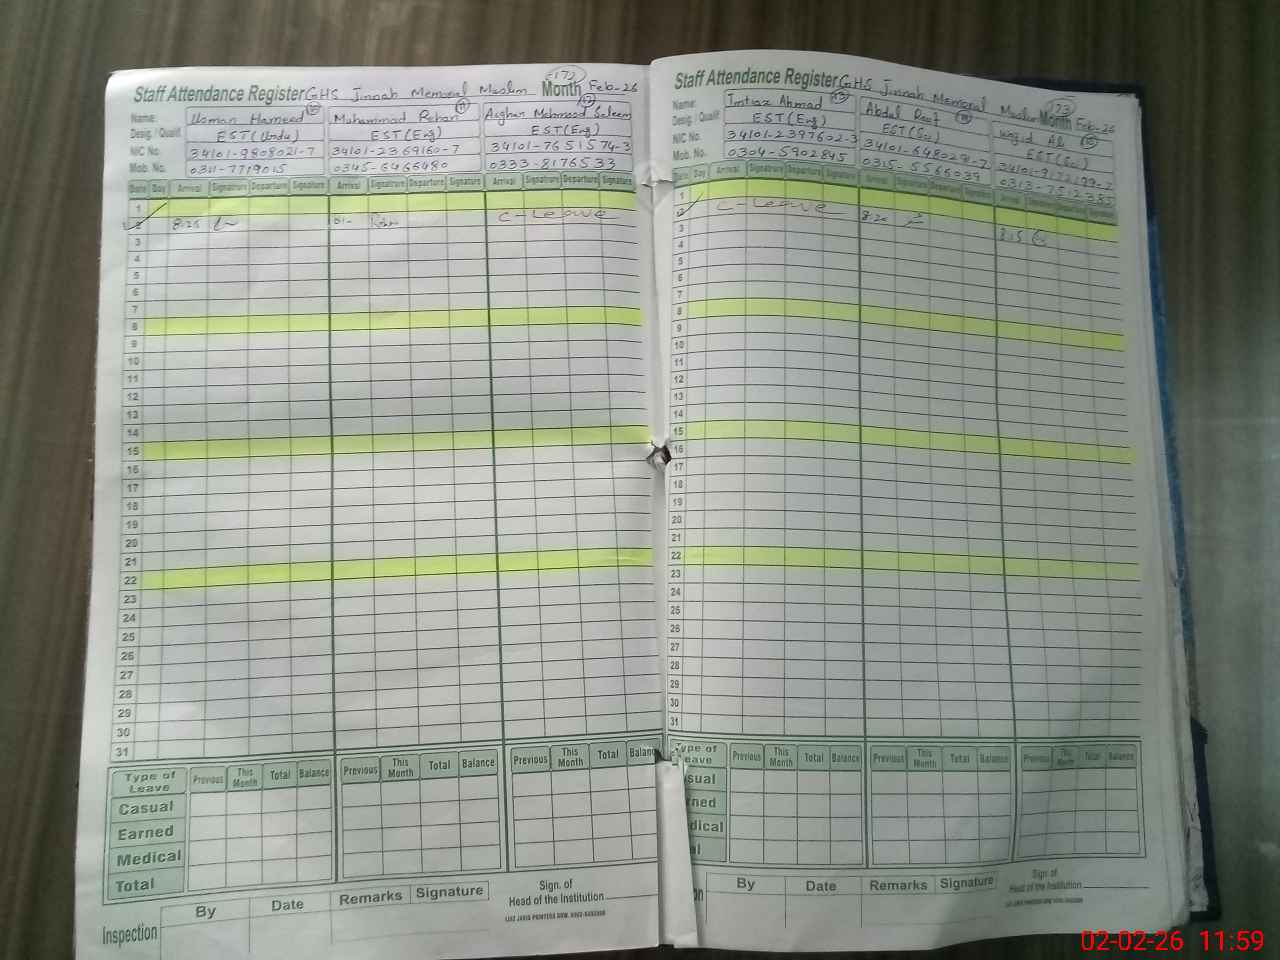 Staff Attendance Register GHS Jinnah Memorial Muslim (172) Month Feb-26
Name: Usman Hameed 10 Muhammad Rehan 11 Asghar Mehmood Saleem 12
Desig. / Qualif. EST (Urdu) EST (Eng) EST (Eng)
NIC No. 34101-9808021-7 34101-2369160-7 34101-7651574-3
Mob. No. 0311-7719015 0345-6466480 0333-8176533
Date Day Arrival Signature Departure Signature Arrival Signature Departure Signature Arrival Signature Departure Signature
1
2 8:25 C-Leave
3
4
5
6
7
8
9
10
11
12
13
14
15
16
17
18
19
20
21
22
23
24
25
26
27
28
29
30
31
Type of Leave Previous This Month Total Balance Previous This Month Total Balance Previous This Month Total Balance
Casual
Earned
Medical
Total
Inspection By Date Remarks Signature Sign. of Head of the Institution
Staff Attendance Register GHS Jinnah Memorial Muslim (173) Month Feb-26
Name: Imtiaz Ahmad 13 Abdul Rauf Wajid Ali
Desig. / Qualif. EST (Eng) EST (Sci) EST (Sci)
NIC No. 34101-2397602-3 34101-6480291-7 34101-9172199-7
Mob. No. 0304-5902845 0315-5566039 0313-7512385
Date Day Arrival Signature Departure Signature Arrival Signature Departure Signature Arrival Signature Departure Signature
1
2 C-Leave 8:20 8:15
3
4
5
6
7
8
9
10
11
12
13
14
15
16
17
18
19
20
21
22
23
24
25
26
27
28
29
30
31
Type of Leave Previous This Month Total Balance Previous This Month Total Balance Previous This Month Total Balance
By Date Remarks Signature Sign. of Head of the Institution
02-02-26 11:59